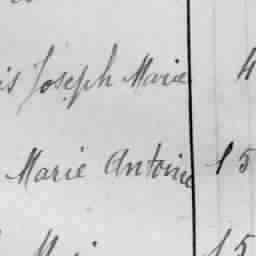 is Joseph Marie 4
Marie Antoine 15
15